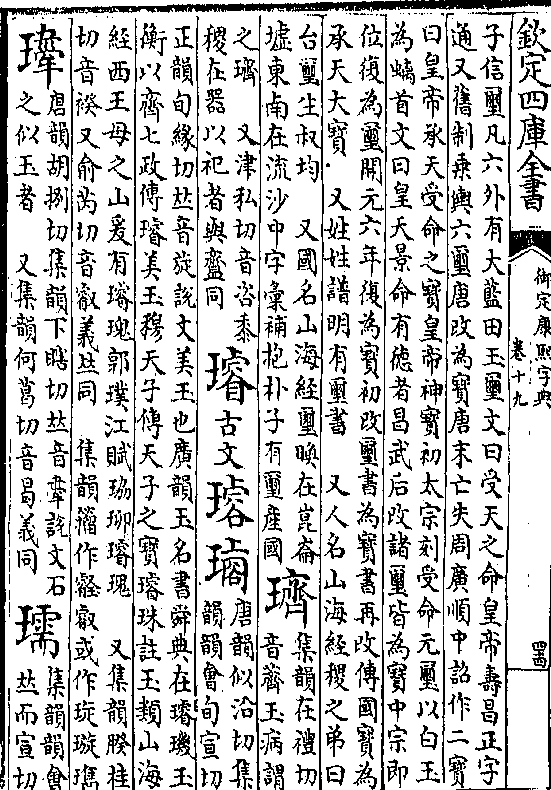 欽定四庫全書
御定康熙字典
卷十九
子信璽凡六外有大藍田玉璽文曰受天之命皇帝壽昌正字
通又舊制乗輿六璽唐改為寶唐末亡失周廣順中詔作二寶
曰皇帝承天受命之寶皇帝神寶初太宗刻受命元璽以白玉
為螭首文曰皇天景命有德者昌武后改諸璽皆為寶中宗即
位復為璽開元六年復為寶初改璽書為寶書再改傳國寶為
承天大寶 又姓姓譜明有璽書 又人名山海經稷之弟曰
台璽生叔均 又國名山海經璽㬇在崑崙
墟東南在流沙中字彙補抱朴子有璽產國
璾
集韻在禮切
音薺玉病謂
之璾 又津私切音咨黍
稷在器以祀者與齍同
璿古文
唐韻似沿切集
韻韻會旬宣切
正韻旬緣切𠀤音旋說文美玉也廣韻玉名書舜典在璿璣玉
衡以齊七政傳璿美玉穆天子傳天子之寶璿珠註玉類山海
經西王母之山爰有璿瑰郭璞江賦珕珋璿瑰 又集韻睽桂
切音褉又俞芮切音叡義𠀤同 集韻籀作叡或作琁璇瓗
唐韻胡捌切集韻下瞎切𠀤音舝說文石
之似玉者 又集韻何葛切音曷義同
瓀
集韻韻會
𠀤而宣切